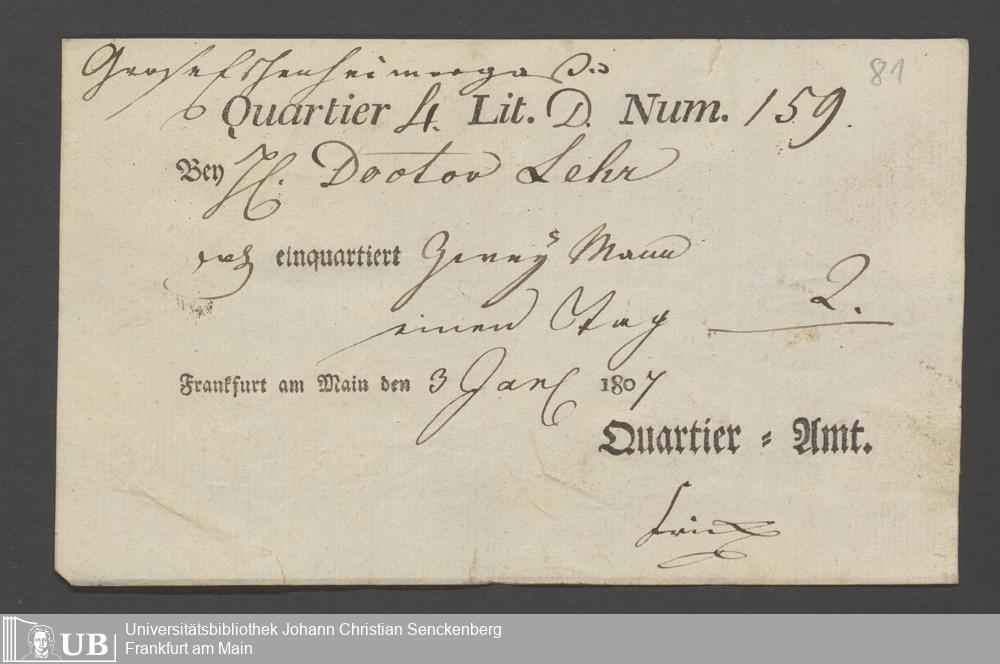 Grose Eschenheimerga
81
Quartier 4. Lit. D. Num. 159.
Bey H. Dootor Lehr
einquartiert Zwey Mann
2.
einen Tag
Frankfurt am Main den 3 Jan 1807
Quartier = Amt.
UB
Universitätsbibliothek Johann Christian Senckenberg
Frankfurt am Main